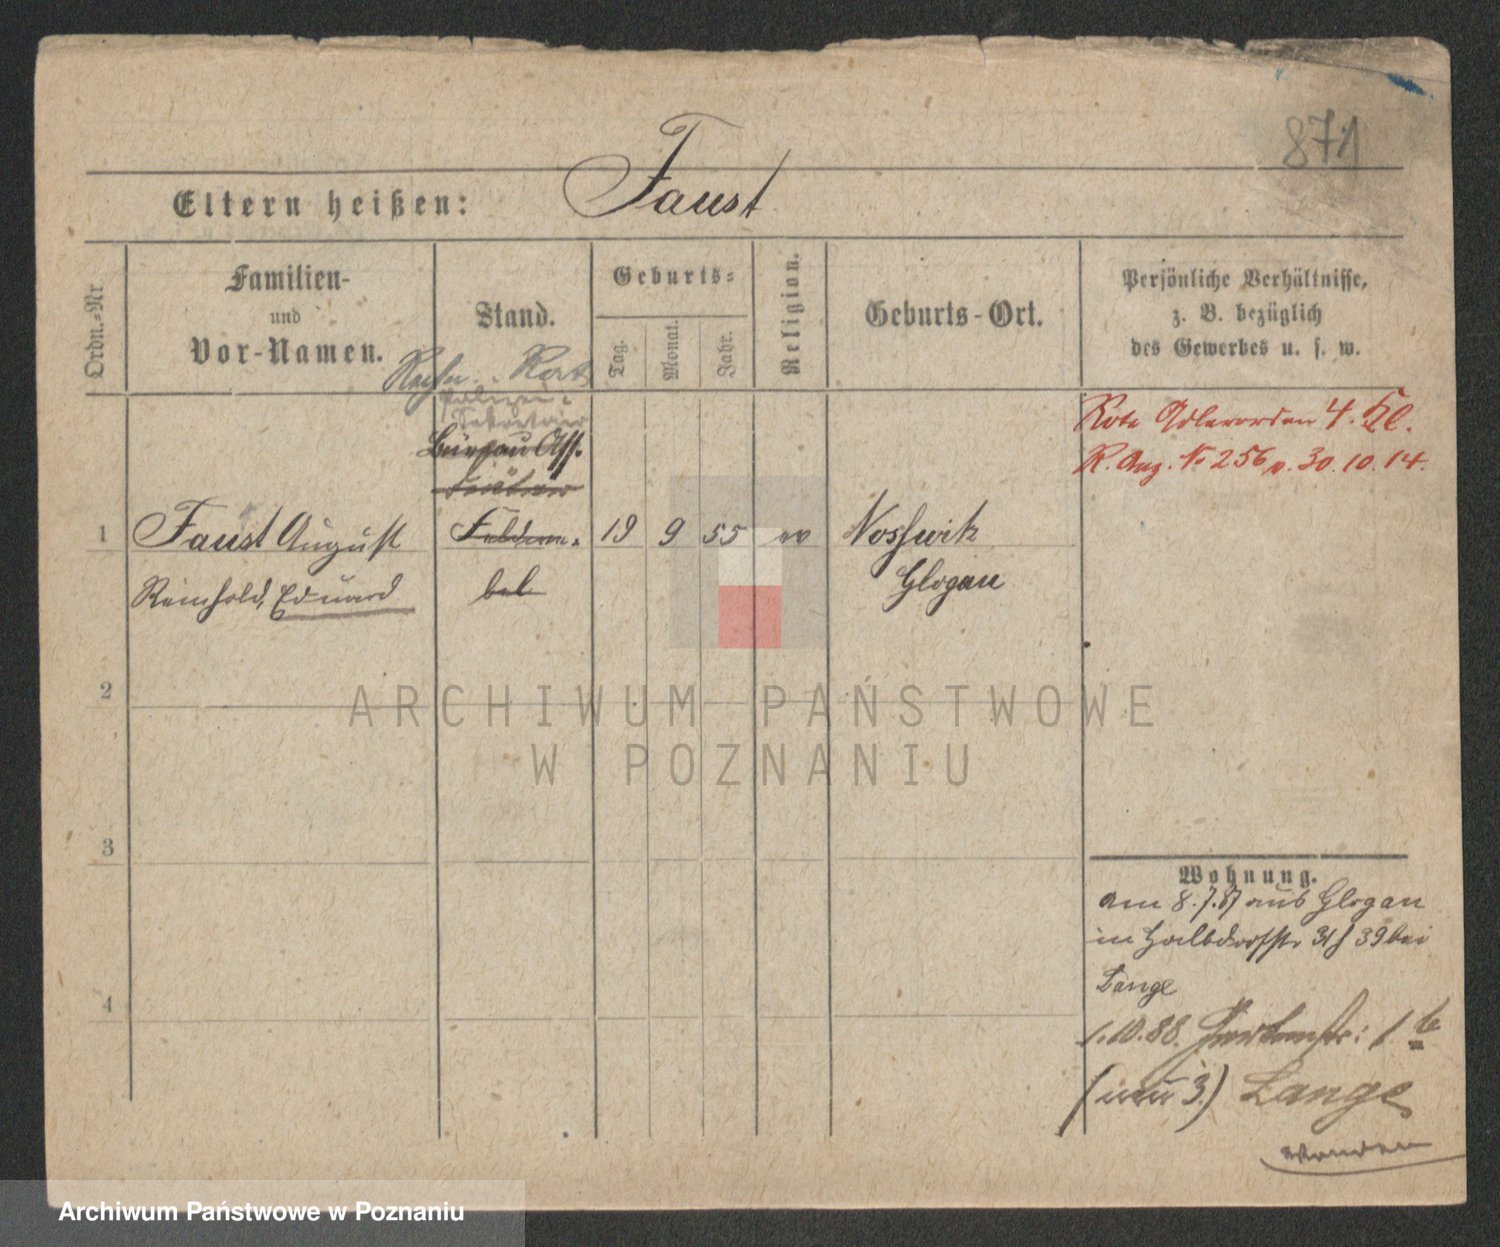 871
Eltern heißen: Faust
Ordn.-Nr
Familien-
und
Vor-Namen.
Stand.
Geburts-
Tag.
Monat.
Jahr.
Religion.
Geburts-Ort.
Persönliche Verhältnisse,
z. B. bezüglich
des Gewerbes u. s. w.
Rechn.. Rat
Polizei-
Sekretair
Büreau Ass.
Rote Adlerorden 4. Kl.
R. Anz. No 256 v. 30.10.14.
1 Faust August Feldwe- 19 9 55 ev Nosswitz
Reinhold, Eduard bel Glogau
2
3
4
Wohnung.
am 8.7.87 aus Glogau
in Halbdorfstr 39 bei
Lange
1.10.88. 1
(neu 3.) Lange
wenden
ARCHIWUM PAŃSTWOWE
W POZNANIU
Archiwum Państwowe w Poznaniu